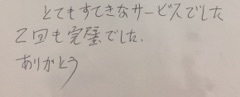 とてもすてきなサービスでした
2回も完璧でした.
ありがとう